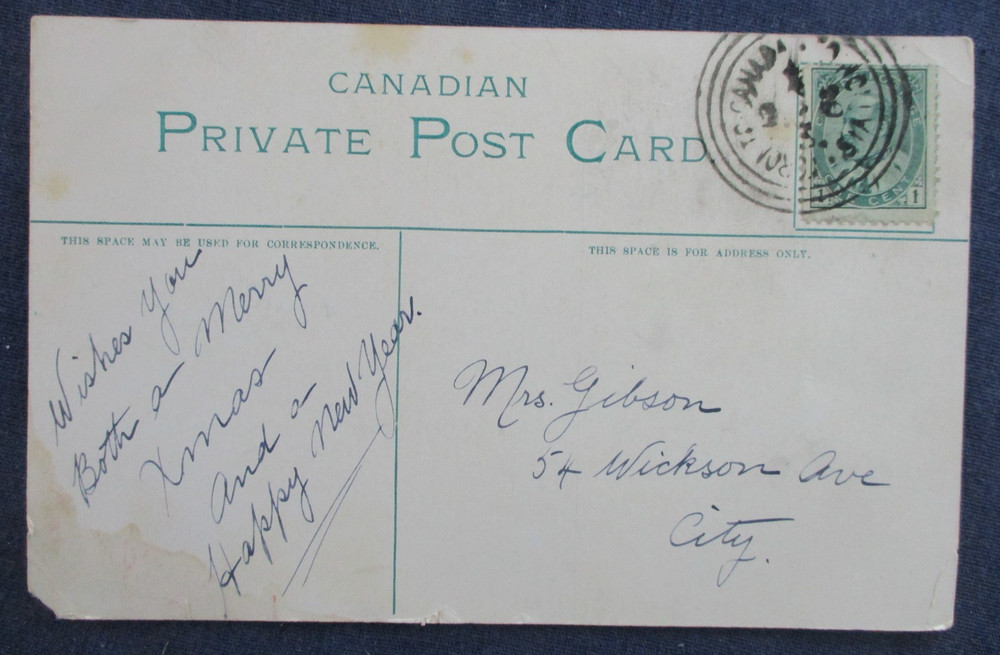 CANADIAN
PRIVATE POST CARD
THIS SPACE MAY BE USED FOR CORRESPONDENCE.
THIS SPACE IS FOR ADDRESS ONLY.
Wishes You
Both a Merry
Xmas
And a
Happy New Year.
Mrs. Gibson
54 Wickson Ave
City.
CANADA
CENT 1